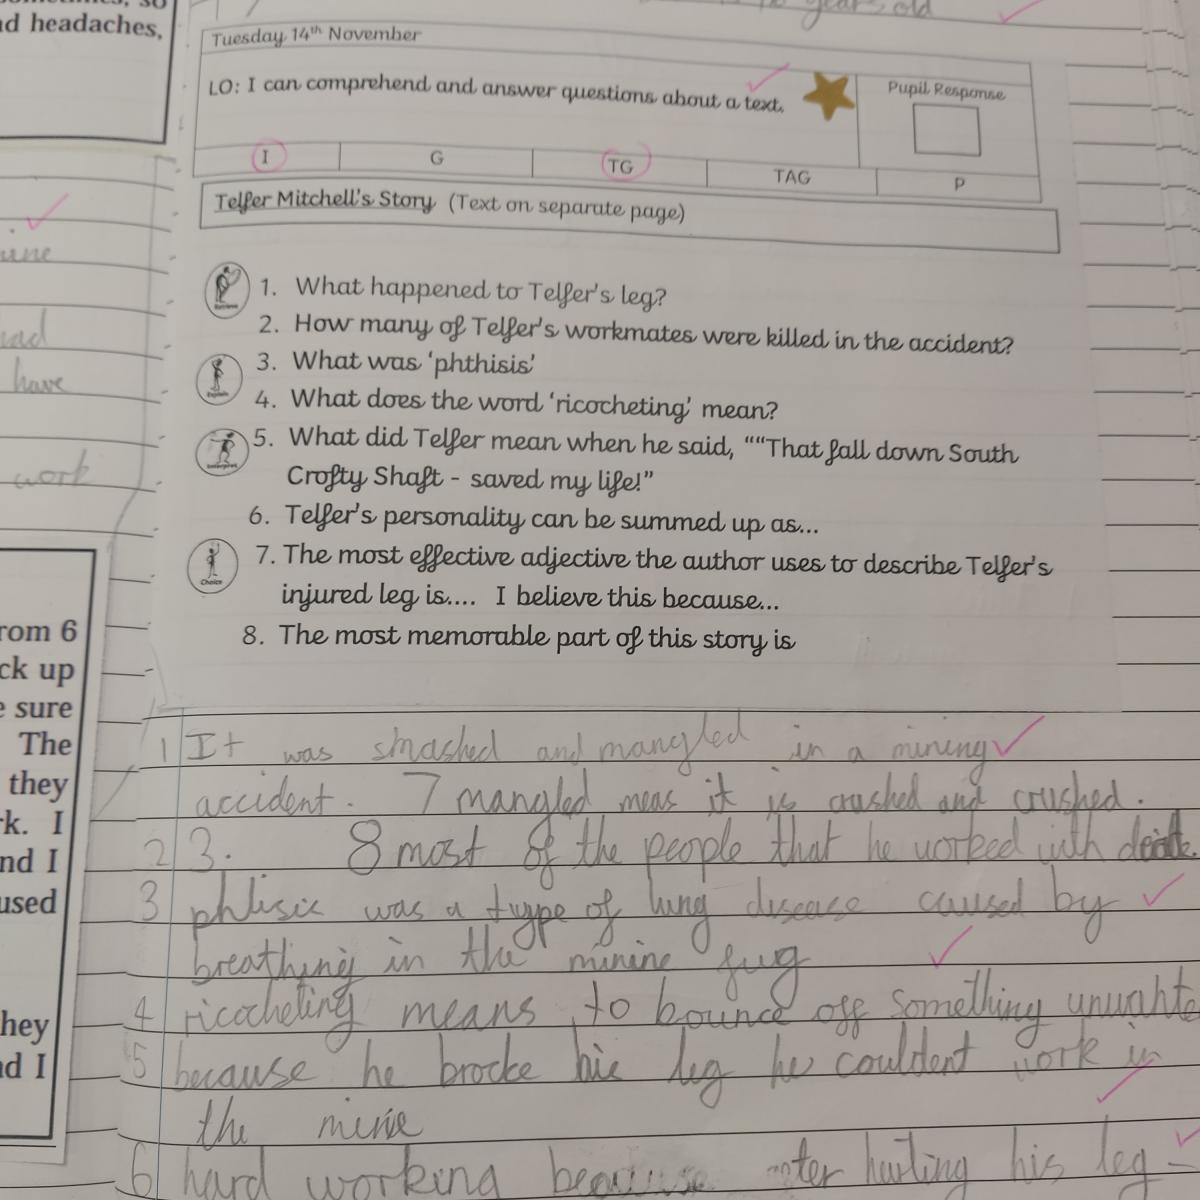 years old
headaches,
Tuesday 14th November
LO: I can comprehend and answer questions about a text.
Pupil Response
I G TG TAG P
Telfer Mitchell's Story (Text on separate page)
1. What happened to Telfer's leg?
2. How many of Telfer's workmates were killed in the accident?
3. What was 'phthisis'
4. What does the word 'ricocheting' mean?
5. What did Telfer mean when he said, ""That fall down South
Crofty Shaft - saved my life!"
6. Telfer's personality can be summed up as...
7. The most effective adjective the author uses to describe Telfer's
injured leg is.... I believe this because...
Choice
8. The most memorable part of this story is
have
work
rom 6
ck up
sure
The
they
k. I
nd I
used
hey
d I
1 It was smashed and mangled in a mining
accident. 7 mangled meas it is crashed and crushed.
2 3. 8 most of the people that he worked with
3 phlisix was a type of lung disease caused by
breathing in the minine fug
4 ricocheting means to bounce off something
5 because he brocke his leg he couldent work in
the mine
6 hard working because after hurting his leg